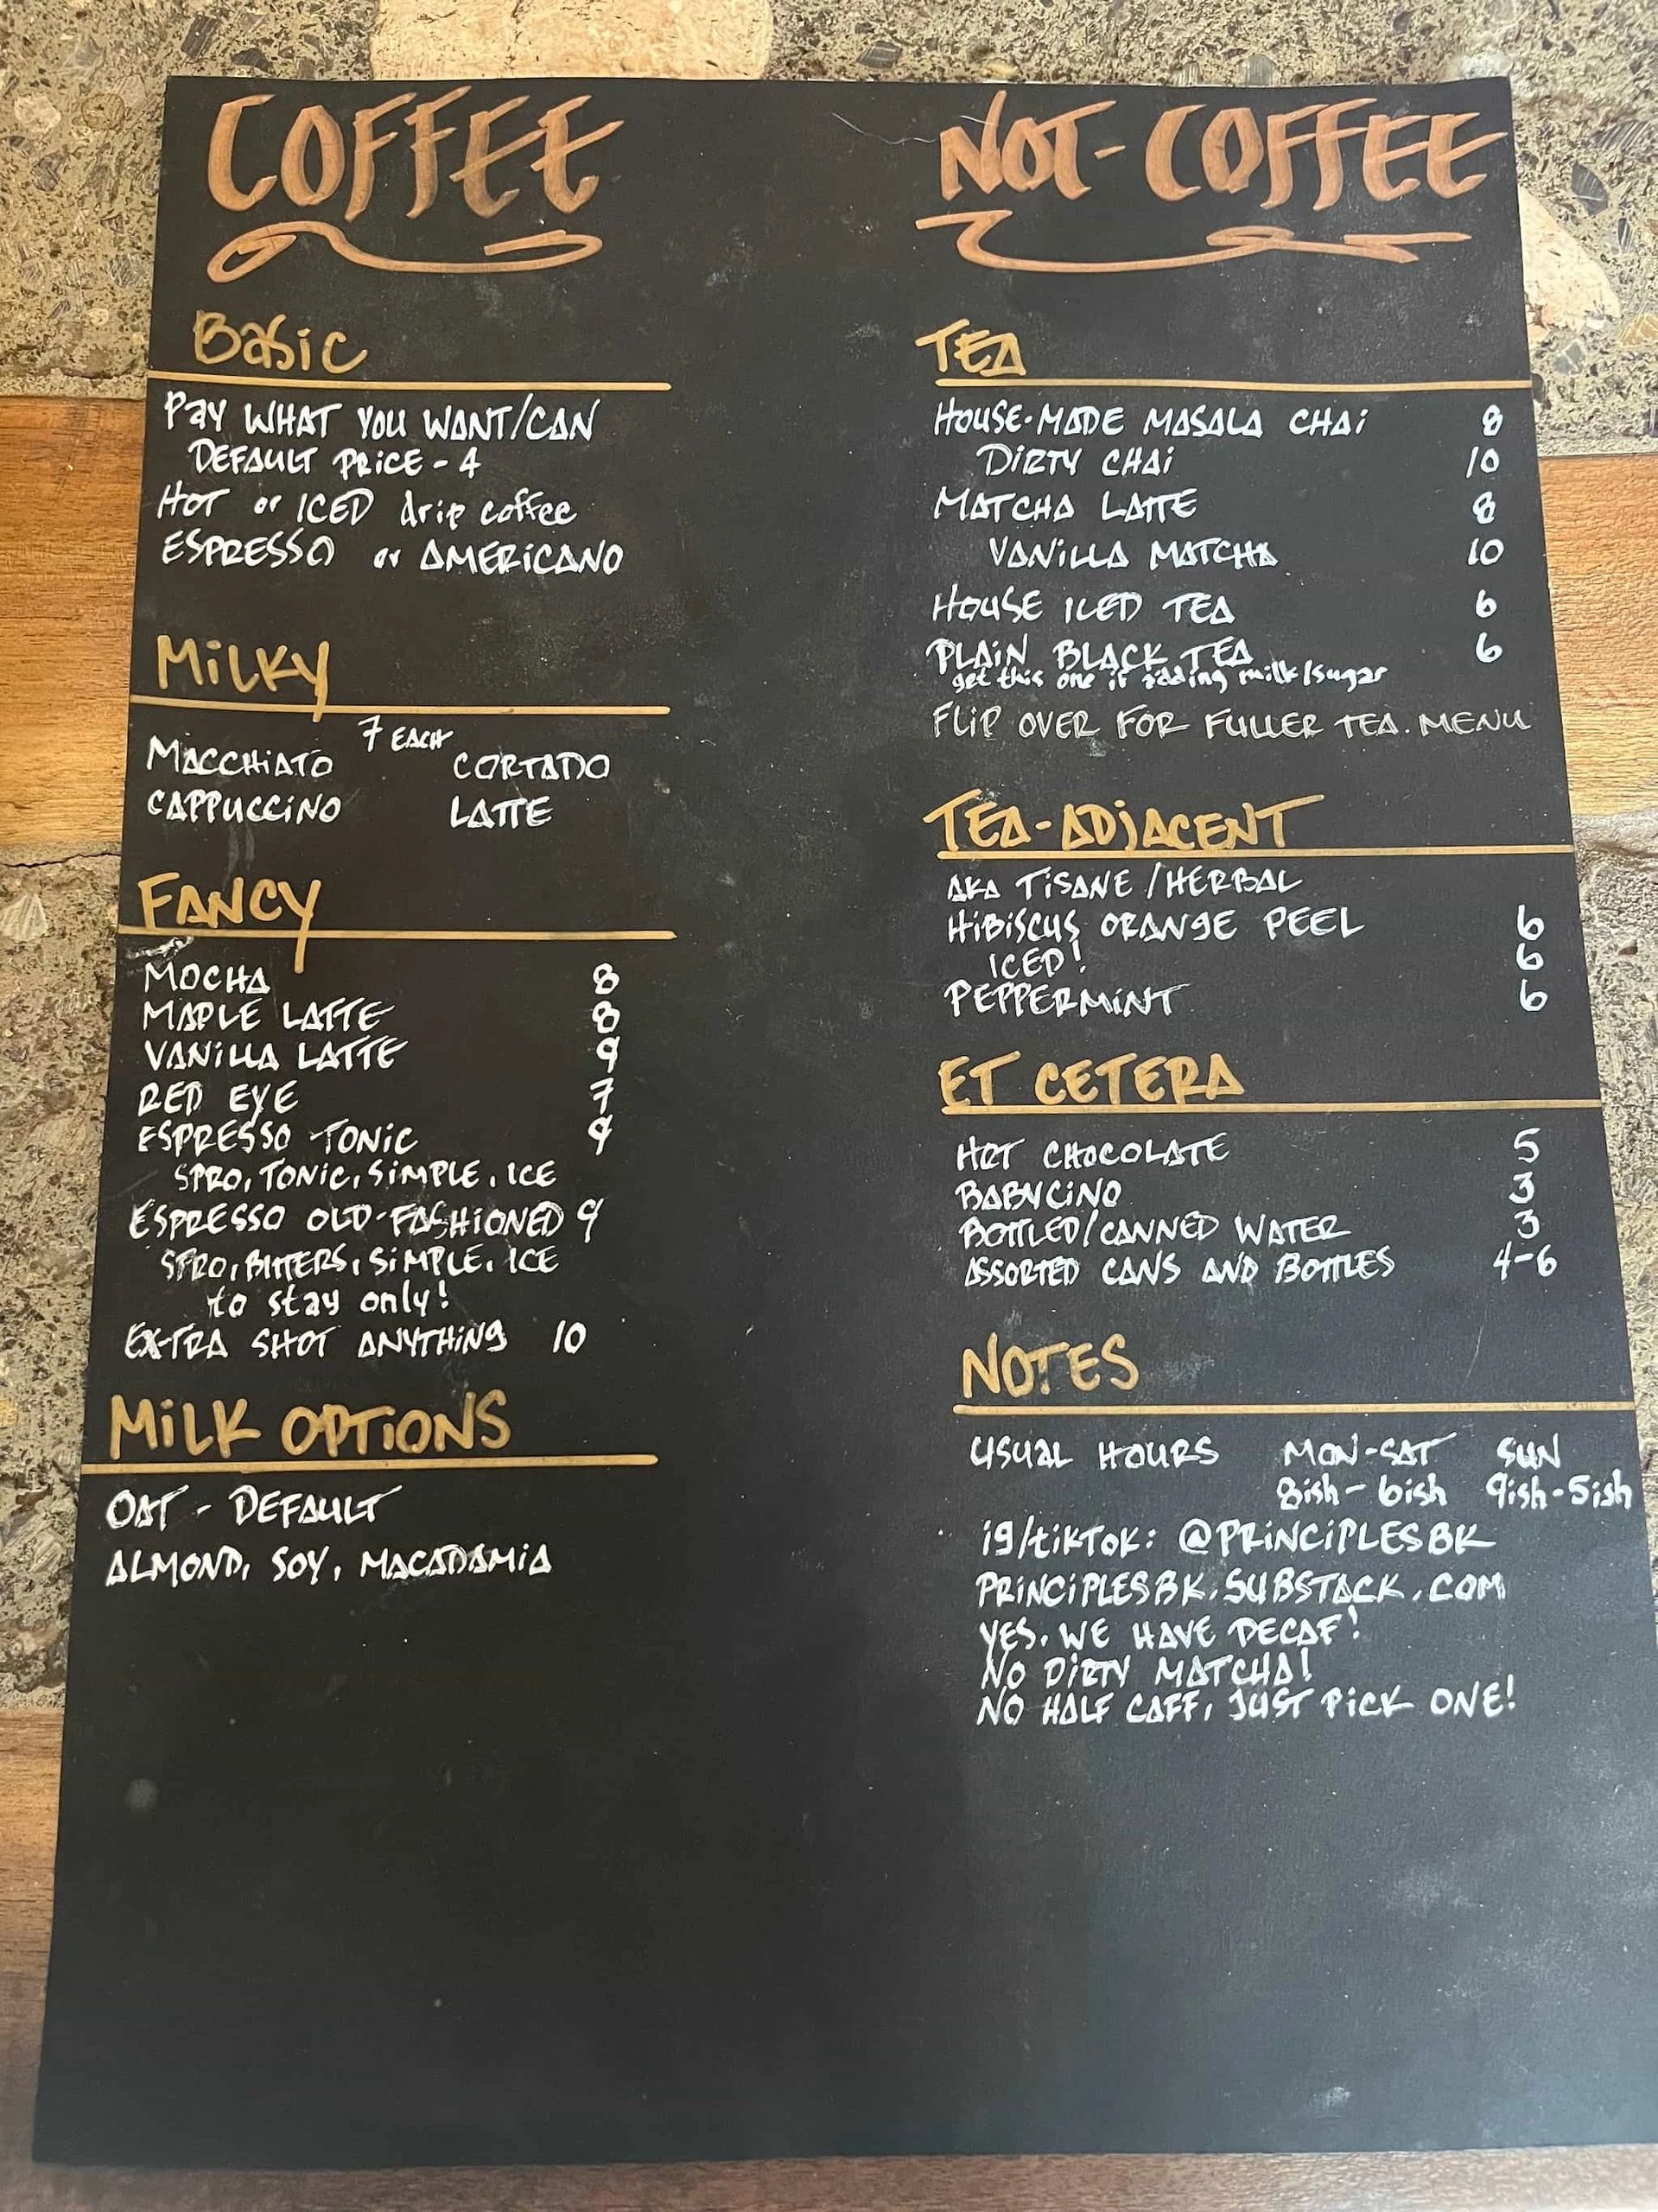 COFFEE
Basic
Pay WHAT YOU WANT/CAN
DEFAULT PRICE - 4
HOT or ICED drip coffee
ESPRESSO or AMERICANO
MiLKY
7 EACH
MACCHIATO CORTADO
CAPPUCCINO LATTE
FANCY
MOCHA 8
MAPLE LATTE 8
VANILLA LATTE 9
RED EYE 7
ESPRESSO TONIC 9
SPRO, TONIC, SIMPLE, ICE
ESPRESSO OLD-FASHIONED 9
SPRO, BITTERS, SIMPLE, ICE
to stay only!
EXTRA SHOT ANYTHING 10
MiLK OPTIONS
OAT - DEFAULT
ALMOND, SOY, MACADAMIA
NOT-COFFEE
TEA
HOUSE-MADE MASALA CHAI 8
DIRTY CHAI 10
MATCHA LATTE 8
VANILLA MATCHA 10
HOUSE ICED TEA 6
PLAIN BLACK TEA 6
get this one if adding milk/sugar
FLIP OVER FOR FULLER TEA MENU
TEA-ADJACENT
AKA TISANE/HERBAL
HIBISCUS ORANGE PEEL 6
ICED! 6
PEPPERMINT 6
ET CETERA
HOT CHOCOLATE 5
BABYCINO 3
BOTTLED/CANNED WATER 3
ASSORTED CANS AND BOTTLES 4-6
NOTES
USUAL HOURS MON-SAT SUN
8ish-6ish 9ish-5ish
ig/tikTok: @PRINCIPLESBK
PRINCIPLESBK.SUBSTACK.COM
YES, WE HAVE DECAF!
NO DIRTY MATCHA!
NO HALF CAFF, JUST PICK ONE!